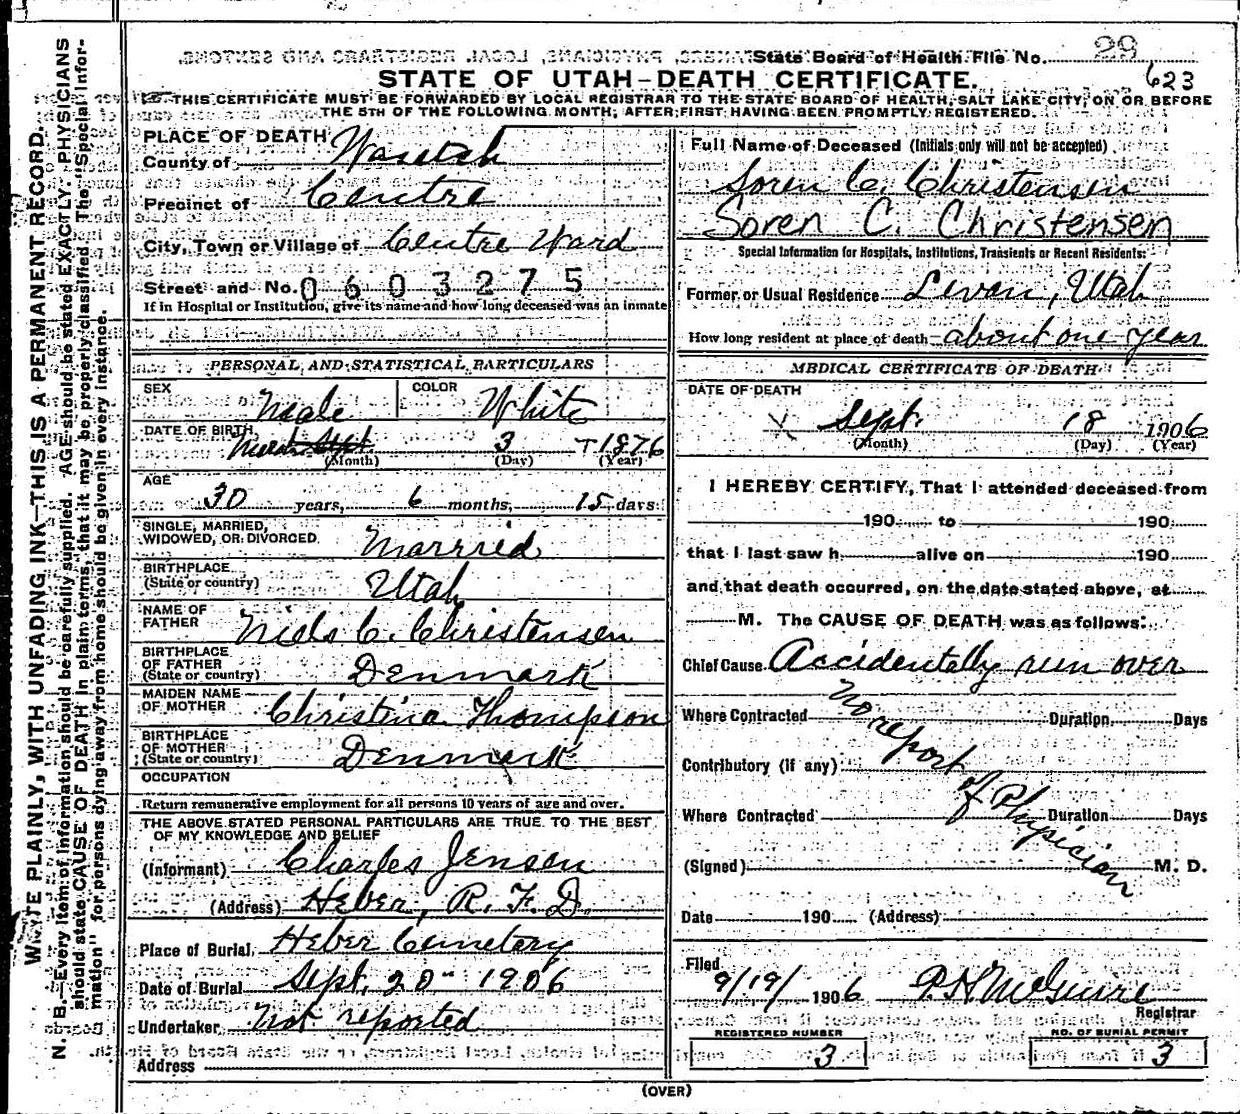 State Board of Health File No. 29
STATE OF UTAH-DEATH CERTIFICATE.
623
THIS CERTIFICATE MUST BE FORWARDED BY LOCAL REGISTRAR TO THE STATE BOARD OF HEALTH, SALT LAKE CITY, ON OR BEFORE
THE 5TH OF THE FOLLOWING MONTH, AFTER FIRST HAVING BEEN PROMPTLY REGISTERED.
WRITE PLAINLY, WITH UNFADING INK—THIS IS A PERMANENT RECORD.
N. B.—Every item of information should be carefully supplied. AGE should be stated EXACTLY. PHYSICIANS
should state CAUSE OF DEATH in plain terms, that it may be properly classified. The "Special Infor-
mation" for persons dying away from home should be given in every instance.
PLACE OF DEATH
County of Wasatch
Precinct of Centre
City, Town or Village of Centre Ward
Street and No. 0603275
If in Hospital or Institution, give its name and how long deceased was an inmate
PERSONAL AND STATISTICAL PARTICULARS
SEX Male
COLOR White
DATE OF BIRTH March Sept. 3 1876
(Month) (Day) (Year)
AGE
30 years, 6 months, 15 days
SINGLE, MARRIED,
WIDOWED, OR DIVORCED Married
BIRTHPLACE
(State or country) Utah
NAME OF
FATHER Niels C. Christensen
BIRTHPLACE
OF FATHER
(State or country) Denmark
MAIDEN NAME
OF MOTHER Christina Thompson
BIRTHPLACE
OF MOTHER
(State or country) Denmark
OCCUPATION
Return remunerative employment for all persons 10 years of age and over.
THE ABOVE STATED PERSONAL PARTICULARS ARE TRUE TO THE BEST
OF MY KNOWLEDGE AND BELIEF
(Informant) Charles Jensen
(Address) Heber, R. F. D.
Place of Burial Heber Cemetery
Date of Burial Sept. 20 - 1906
Undertaker Not reported
Address
Full Name of Deceased (Initials only will not be accepted)
Soren C. Christensen
Soren C. Christensen
Special Information for Hospitals, Institutions, Transients or Recent Residents:
Former or Usual Residence Levan, Utah
How long resident at place of death about one year
MEDICAL CERTIFICATE OF DEATH
DATE OF DEATH
X Sept. 18 1906
(Month) (Day) (Year)
I HEREBY CERTIFY, That I attended deceased from
190 to 190
that I last saw h alive on 190
and that death occurred, on the date stated above, at
M. The CAUSE OF DEATH was as follows:
Chief Cause Accidentally run over
Where Contracted Duration Days
Contributory (if any)
Where Contracted Duration Days
No report of Physician
(Signed) M. D.
Date 190 (Address)
Filed
9/19/ 1906 P. H. McGuire
Registrar
REGISTERED NUMBER
3
NO. OF BURIAL PERMIT
3
(OVER)